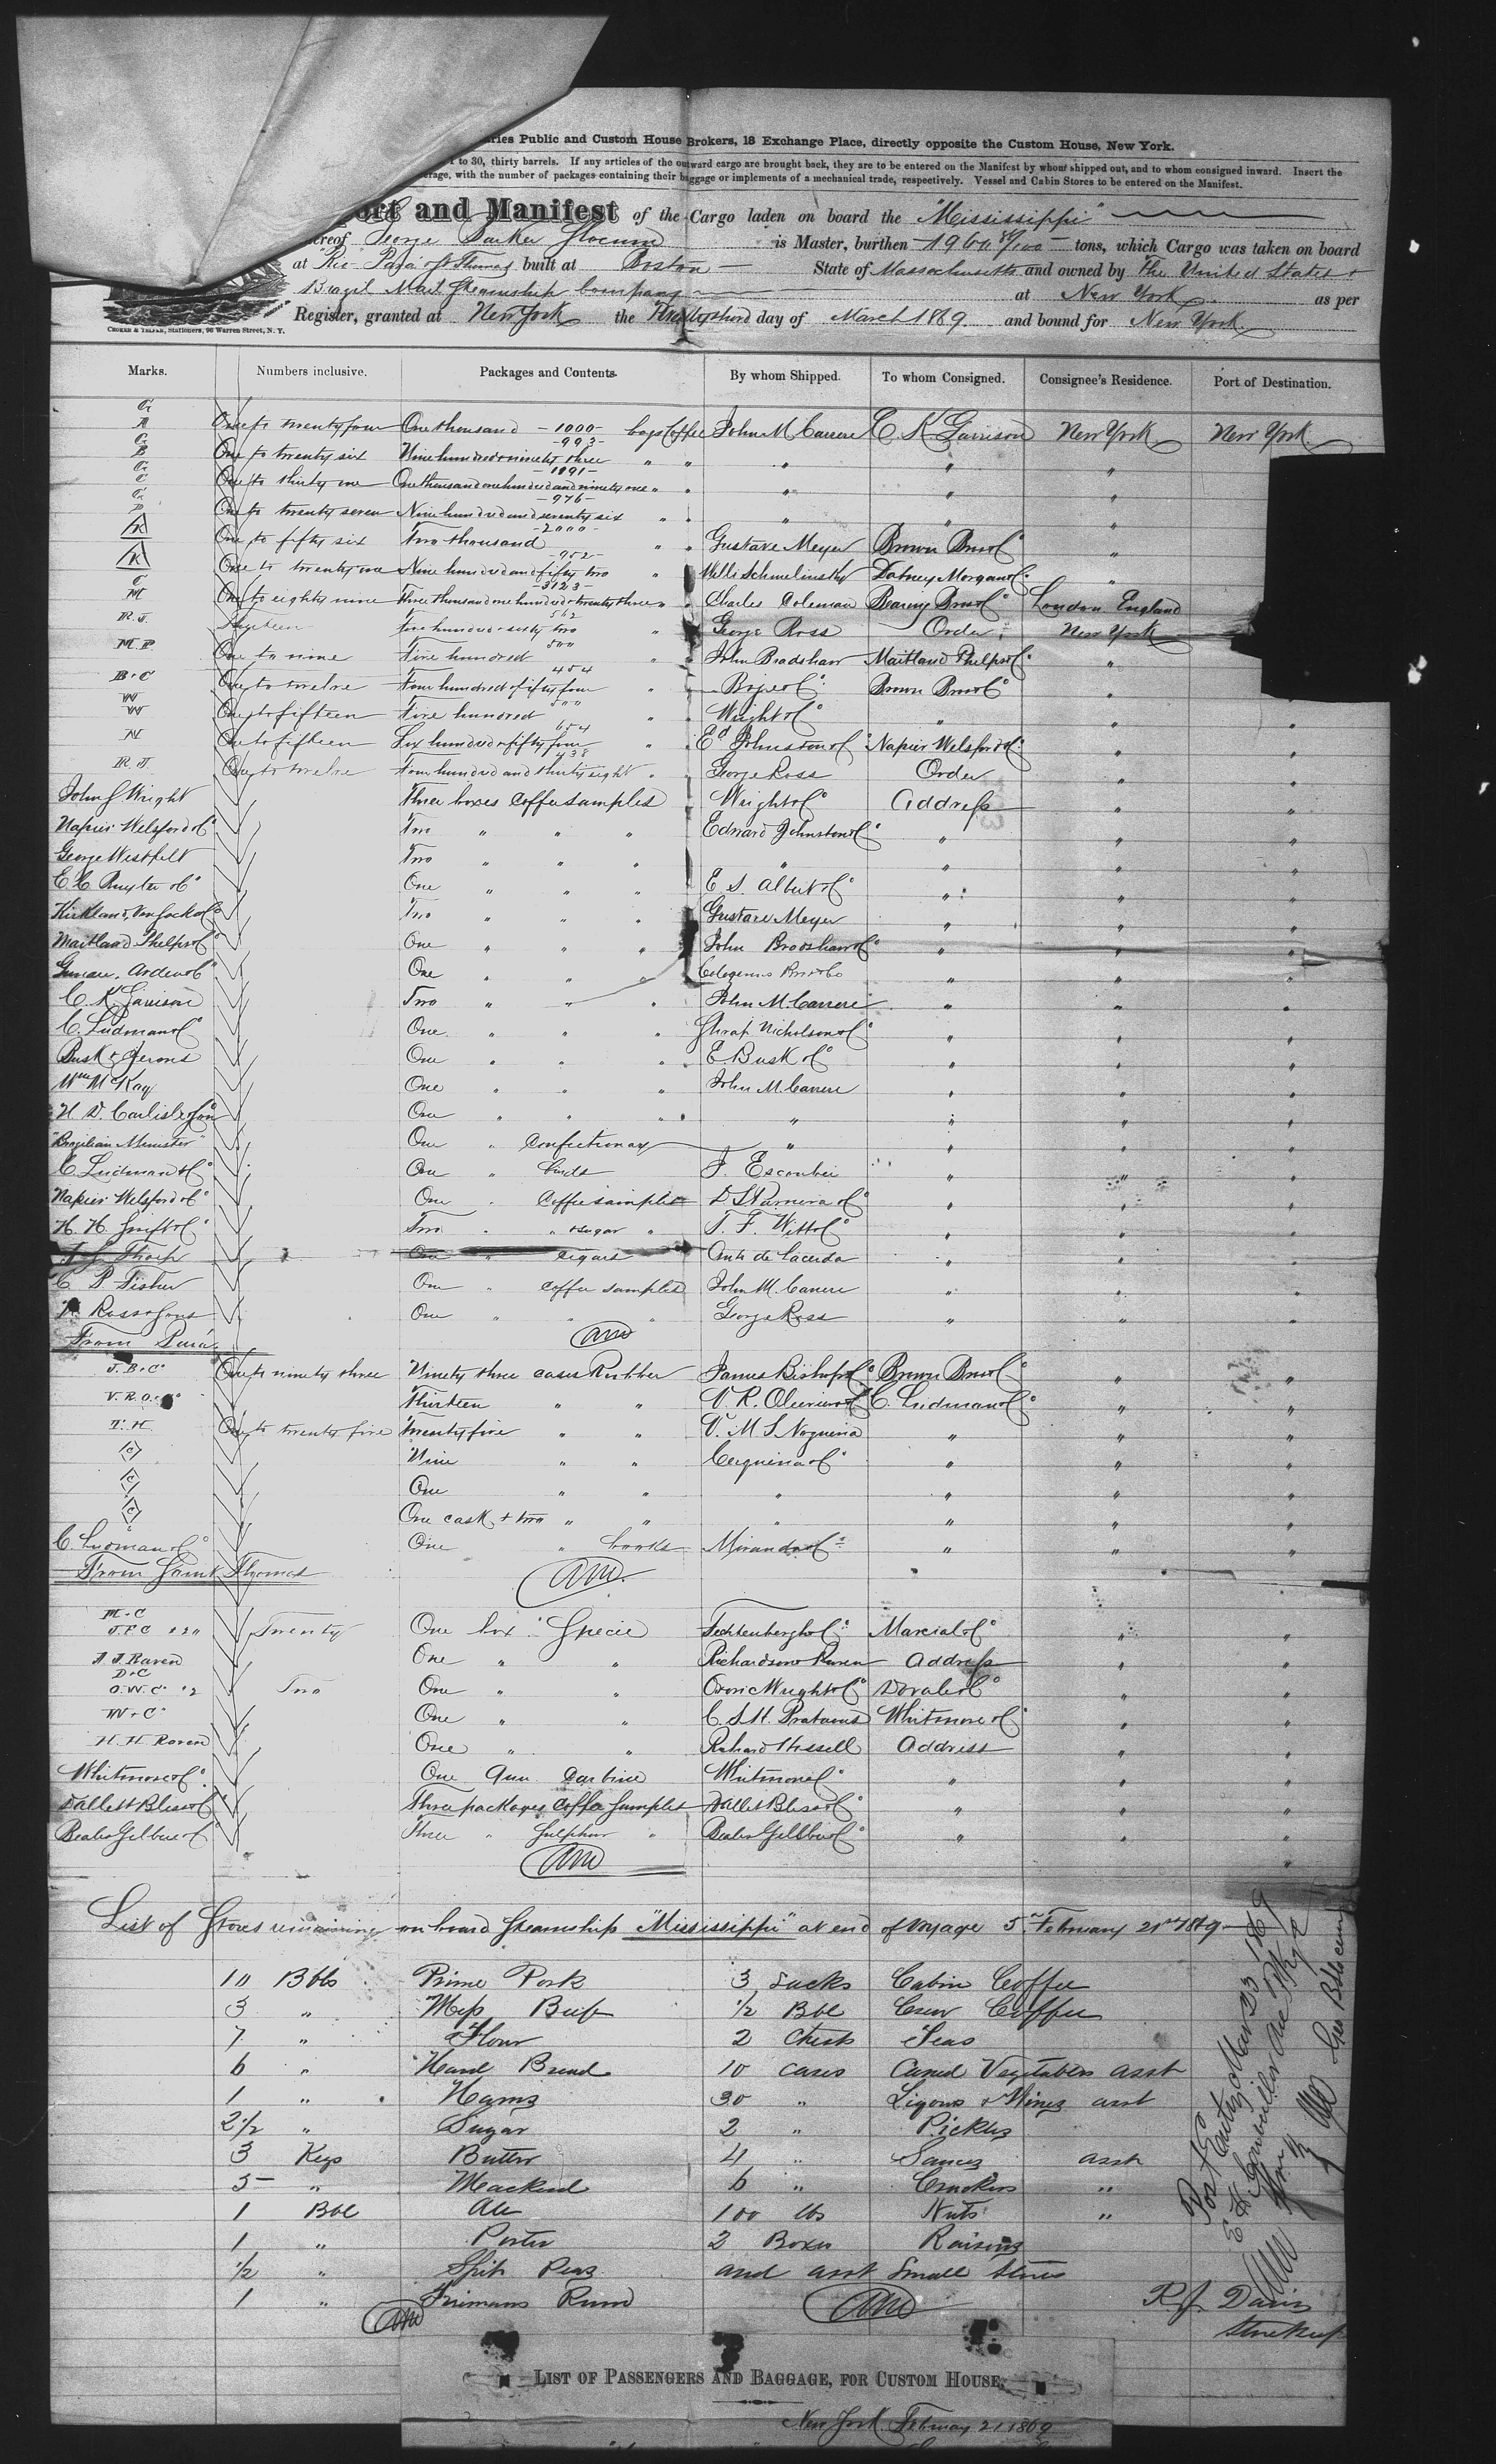 ries Public and Custom House Brokers, 18 Exchange Place, directly opposite the Custom House, New York.
1 to 30, thirty barrels. If any articles of the outward cargo are brought back, they are to be entered on the Manifest by whom shipped out, and to whom consigned inward. Insert the
erage, with the number of packages containing their baggage or implements of a mechanical trade, respectively. Vessel and Cabin Stores to be entered on the Manifest.
ort and Manifest of the Cargo laden on board the "Mississippi"
ereof George Barker Slocum is Master, burthen tons, which Cargo was taken on board
at Rio Para & St Thomas built at Boston State of Massachusetts and owned by The United States &
Brazil Mail Steamship Company at New York as per
CROKER & TELFAR, Stationers, 96 Warren Street, N. Y.
Register, granted at New York the day of March 1869 and bound for New York
Marks. Numbers inclusive. Packages and Contents. By whom Shipped. To whom Consigned. Consignee's Residence. Port of Destination.
G
A One to twenty four One thousand -1000- bags Coffee John M. Carrere C. K. Garrison New York New York
G -993-
B One to twenty six Nine hundred & ninety three " " " " "
G -1191-
C One to thirty one One thousand one hundred and ninety one " " " " "
G -976-
D One to twenty seven Nine hundred and seventy six " " " " "
-2000-
K One to fifty six Two thousand " " Gustave Meyer Brown Bros & Co "
-952-
K One to twenty one Nine hundred and fifty two " Mills Schmelinsky Dabney Morgan & Co "
C -3123-
M One to eighty nine Three thousand one hundred & twenty three " " Charles Coleman Bearing Bros & Co London England
562
R. J. Five hundred & sixty two " George Ross Order New York
500
M. P. One to nine Five hundred " " John Bradshaw Maitland Phelps & Co "
454
B & C One to twelve Four hundred & fifty four " Boje & Co Brown Bros & Co "
W 500
W One to fifteen Five hundred " Wright & Co " " "
654
N One to fifteen Six hundred & fifty four " Ed Johnston & Co Napier Welsford & Co " "
438
R. J. One to twelve Four hundred and thirty eight " George Ross Order " "
John S Wright Three boxes Coffee samples Wright & Co Address " "
Napier Welsford & Co Two " " " Edward Johnston & Co " " "
George Westfelt Two " " " " " " "
E. C. Ruyter & Co One " " " E S Albert & Co " " "
Kirkland, Van Sack & Co Two " " " Gustave Meyer " " "
Maitland Phelps & Co One " " " John Bradshaw & Co " " "
Arden & Co One " " " Bros & Co " " "
C. K. Garrison Two " " " John M. Carrere " " "
C. Ludman & Co One " " " Nicholson & Co " " "
Busk & Jevons One " " " E. Busk & Co " " "
Wm McKay One " " " John M. Carrere " " "
H D. Carlisle & Son One " " " " " " "
"Brazilian Minister" One " Confectionary " " " "
C Ludman & Co One " birds F. Escoubei " " "
Napier Welsford & Co One " Coffee samples " " "
H. H. Swift & Co Two " " & sugar " T. F. Witt & Co " " "
J. S. Tharp One " cigars Anto de Lacerda " " "
C P Fisher One " coffee samples John M. Carrere " " "
Ross & Sons One " " " George Ross " " "
From Pará
J. B. & Co One to ninety three Ninety three cases Rubber James Bishop & Co Brown Bros & Co " "
V. R. O. & Co Thirteen " " V. R. Oliveira & Co C. Ludman & Co " "
T. H One to twenty five Twenty five " " V. M S Nogueira " " "
C Nine " " Cerqueira & Co " " "
C One " " " " " "
C One cask & two " " " " " "
C. Ludman & Co One " books Miranda & Co " " "
From Saint Thomas
M & C
J. F. C 120 Twenty One box Specie Fechtenbergh & Co Marcial & Co " "
J. J. Raven One " " Richardson Raven Address " "
D & C
O. W. C. 2 Two One " " Wright & Co Dovale & Co " "
W & C One " " Whitmore & Co " "
H. H. Raven One " " Richard Hassell Address " "
Whitmore & Co One Gun Carbine Whitmore & Co " " "
Dallett Bliss & Co Three packages Coffee samples Dallett Bliss & Co " " "
Three " Sulphur " " " "
List of Stores remaining on board Steamship "Mississippi" at end of voyage 5 February 21st 1869
10 Bbls Prime Pork 3 Sacks Cabin Coffee
3 " Mess Beef 1/2 Bbl Crew Coffee
7 " Flour 2 Chests Teas
6 " Hard Bread 10 cases Caned Vegetables asst
1 " Hams 30 " Liquors & Wines asst
2 1/2 " Sugar 2 " Pickles
3 Kegs Butter 4 " Sauces asst
5 " Mackerel 6 " Crackers "
1 Bbl Ale 100 lbs Nuts "
1 " Porter 2 Boxes Raisins
1/2 " Split Peas and asst Small stores
1 " Firemans Rum
R. J. Davis
Storekeep
Post Entry Mar 23 1869
LIST OF PASSENGERS AND BAGGAGE, FOR CUSTOM HOUSE.
New York February 21 1869